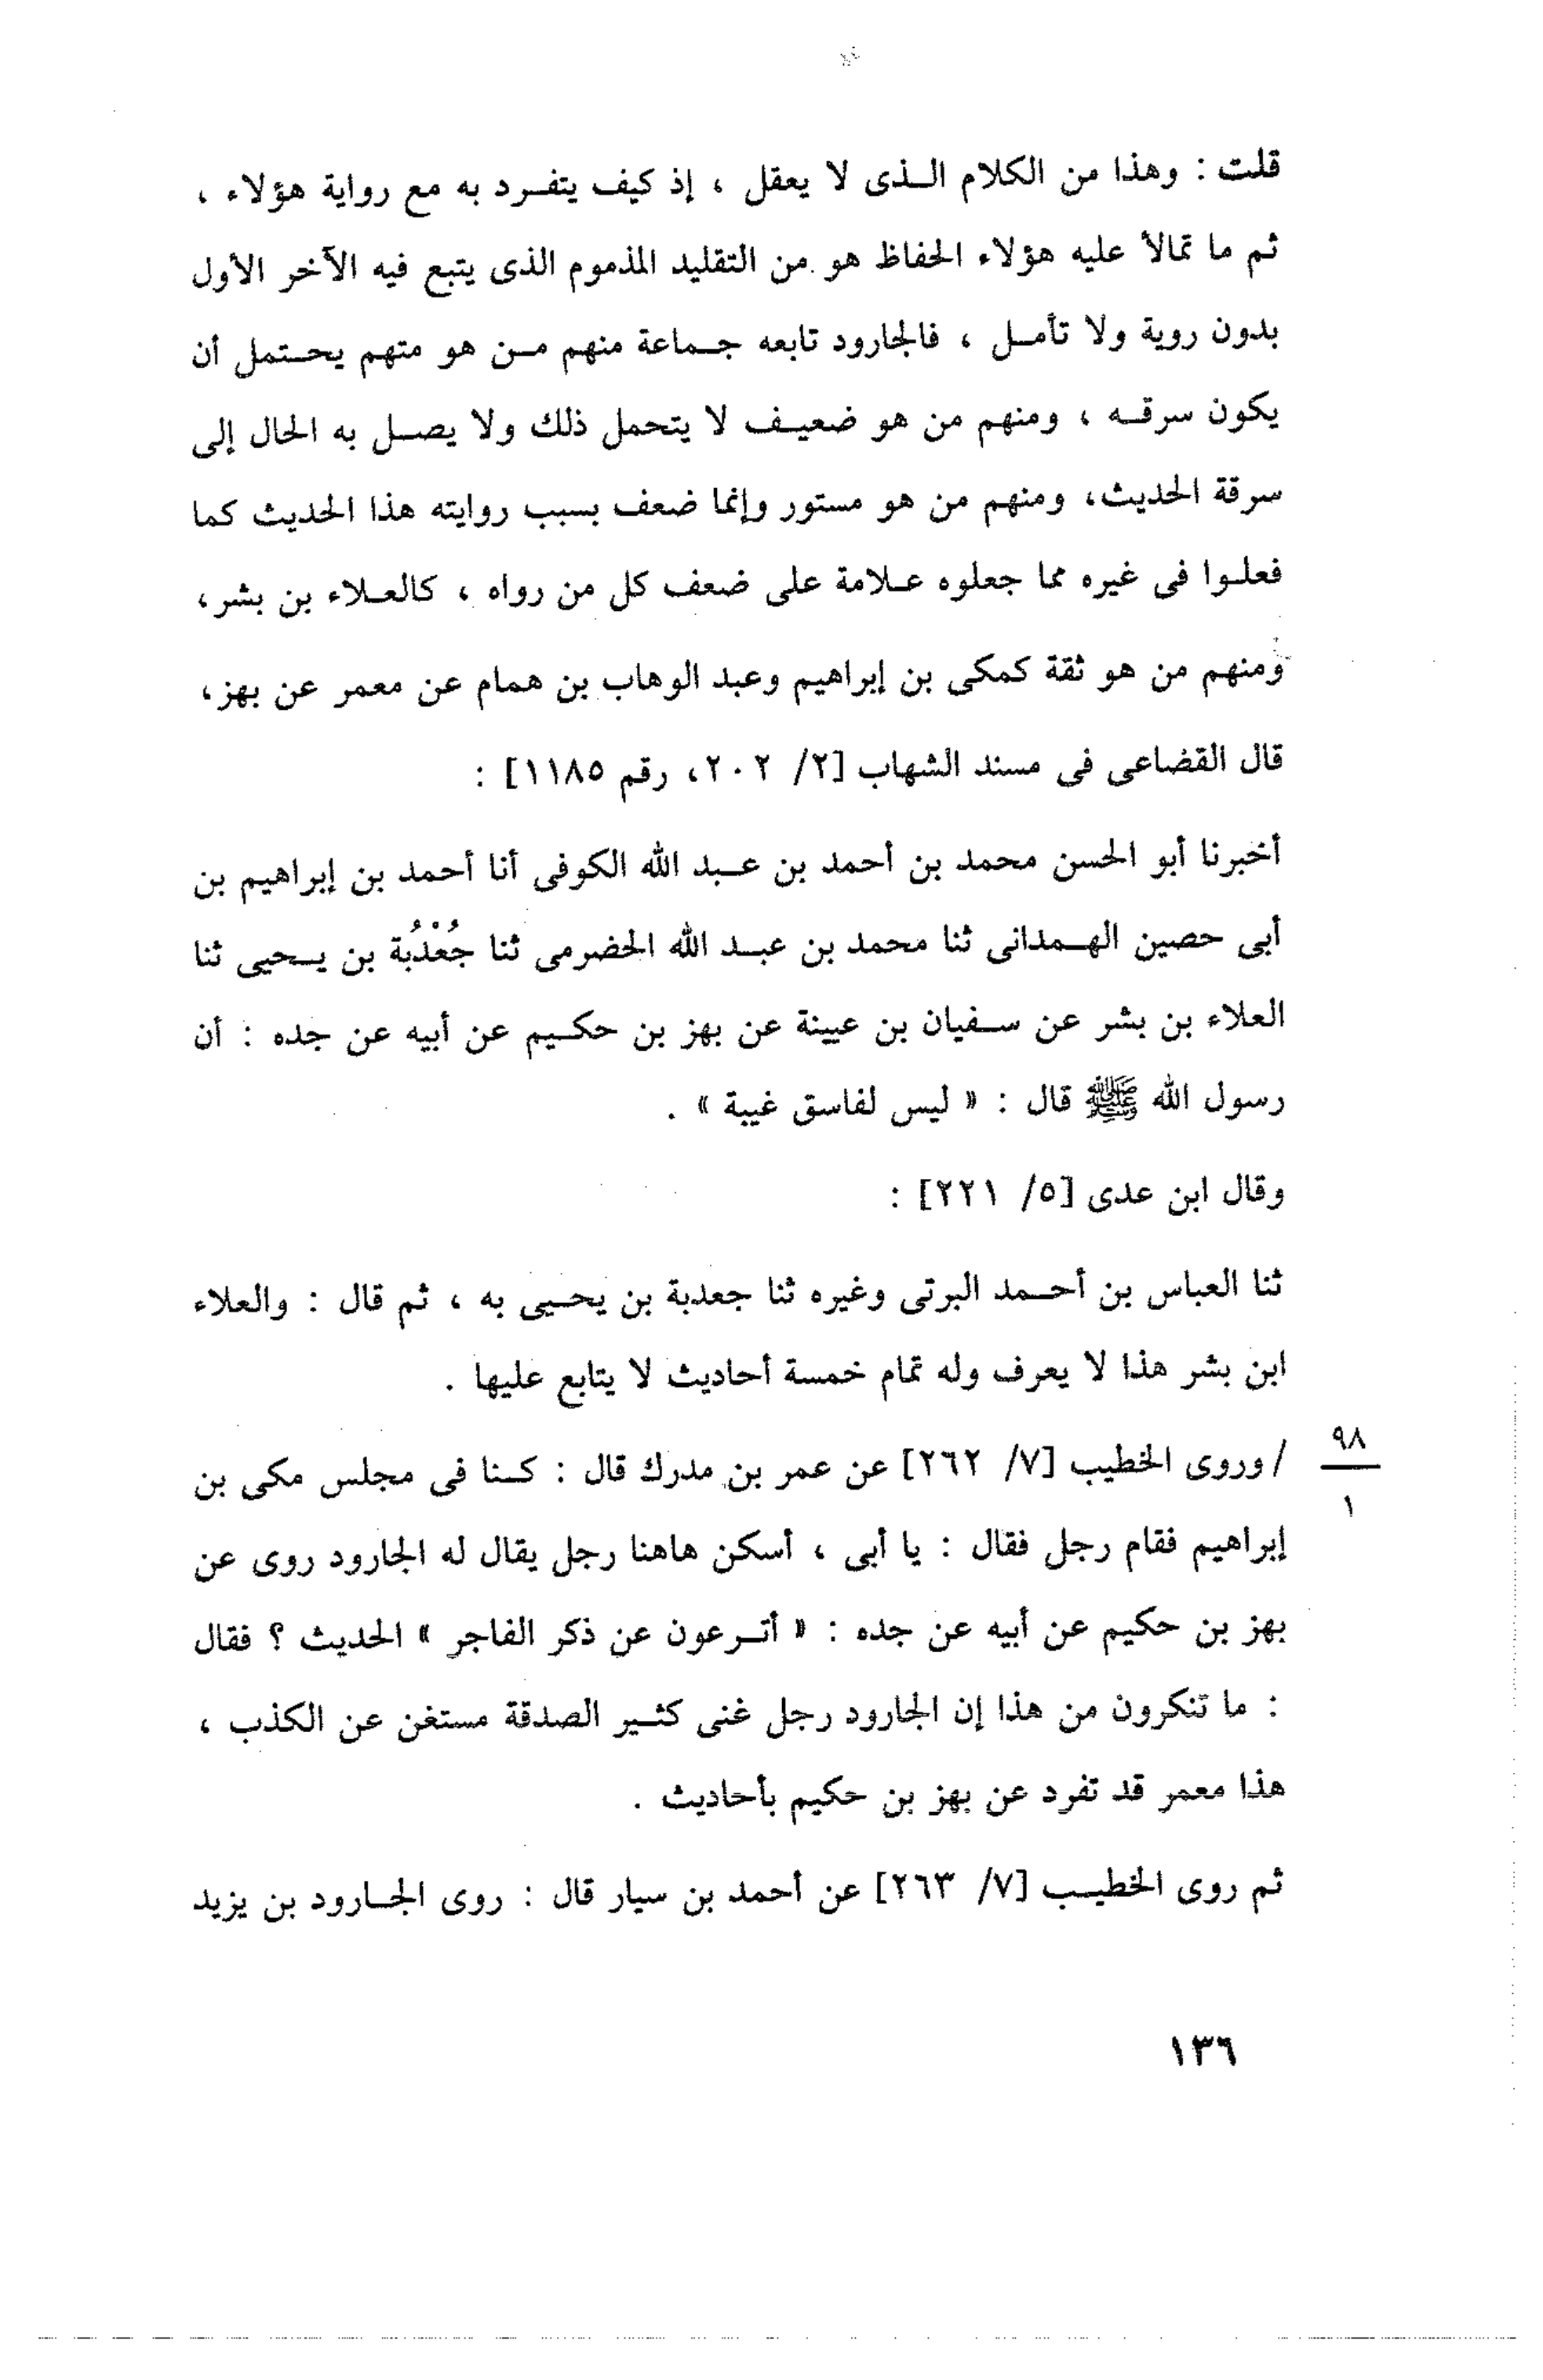 قلت : وهذا من الكلام الذى لا يعقل ، إذ كيف يتفرد به مع رواية هؤلاء ،
ثم ما تمالأ عليه هؤلاء الحفاظ هو من التقليد المذموم الذى يتبع فيه الآخر الأول
بدون روية ولا تأمل ، فالجارود تابعه جماعة منهم من هو متهم يحتمل أن
يكون سرقه ، ومنهم من هو ضعيف لا يتحمل ذلك ولا يصل به الحال إلى
سرقة الحديث، ومنهم من هو مستور وإنما ضعف بسبب روايته هذا الحديث كما
فعلوا فى غيره مما جعلوه علامة على ضعف كل من رواه ، كالعلاء بن بشر،
ومنهم من هو ثقة كمكى بن إبراهيم وعبد الوهاب بن همام عن معمر عن بهز،
قال القضاعى فى مسند الشهاب [٢/ ٢٠٢، رقم ١١٨٥] :
أخبرنا أبو الحسن محمد بن أحمد بن عبد الله الكوفى أنا أحمد بن إبراهيم بن
أبى حصين الهمدانى ثنا محمد بن عبد الله الحضرمى ثنا جُعْدُبة بن يحيى ثنا
العلاء بن بشر عن سفيان بن عيينة عن بهز بن حكيم عن أبيه عن جده : أن
رسول الله ﷺ قال : « ليس لفاسق غيبة » .
وقال ابن عدى [٥/ ٢٢١] :
ثنا العباس بن أحمد البرتى وغيره ثنا جعدبة بن يحيى به ، ثم قال : والعلاء
ابن بشر هذا لا يعرف وله تمام خمسة أحاديث لا يتابع عليها .
/ وروى الخطيب [٧/ ٢٦٢] عن عمر بن مدرك قال : كنا فى مجلس مكى بن
٩٨
١
إبراهيم فقام رجل فقال : يا أبى ، أسكن هاهنا رجل يقال له الجارود روى عن
بهز بن حكيم عن أبيه عن جده : « أترعون عن ذكر الفاجر » الحديث ؟ فقال
: ما تنكرون من هذا إن الجارود رجل غنى كثير الصدقة مستغن عن الكذب ،
هذا معمر قد تفرد عن بهز بن حكيم بأحاديث .
ثم روى الخطيب [٧/ ٢٦٣] عن أحمد بن سيار قال : روى الجارود بن يزيد
١٣٦